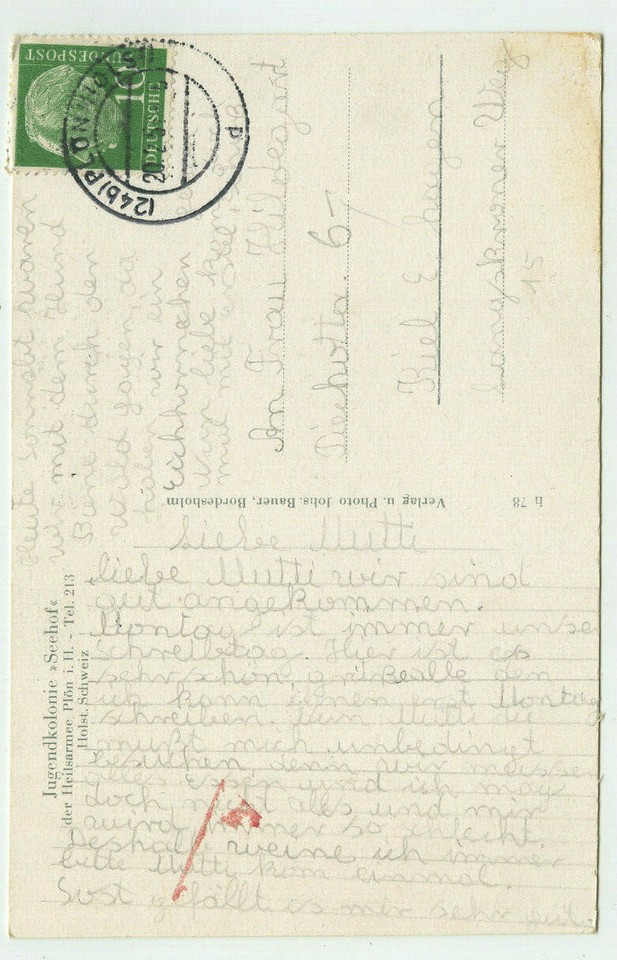 Liebe Mutti
liebe Mutti wir sind
gut angekommen.
Montag ist immer unse
Schreibtag. Hier ist es
sehr schön, grüße alle den
ich kann ihnen erst Montag
schreiben. nun Mutti
mußt mich unbedingt
besuchen, denn wir müssen
alles essen und ich mag
doch nicht ales und mir
wird immer so schlecht.
Deshalb weine ich immer
bitte Mutti kom einmal.
Sost gefällt es mir sehr gut.
Heute Sonnabt waren
wir mit dem Hund
Biene durch den
Wald gangen, da
haben wir ein
Eichhörnchen
Nun liebe
mal mit
An Frau Hildegart
Piechotta 6-
Kiel E. hagen
Langskroner Weg
15
Jugendkolonie »Seehof«
der Heilsarmee Plön i. H. - Tel. 213
Holst. Schweiz
Verlag u. Photo Johs. Bauer, Bordesholm
h 78
DEUTSCHE
BUNDESPOST
10
(24b) PLÖN
20
d